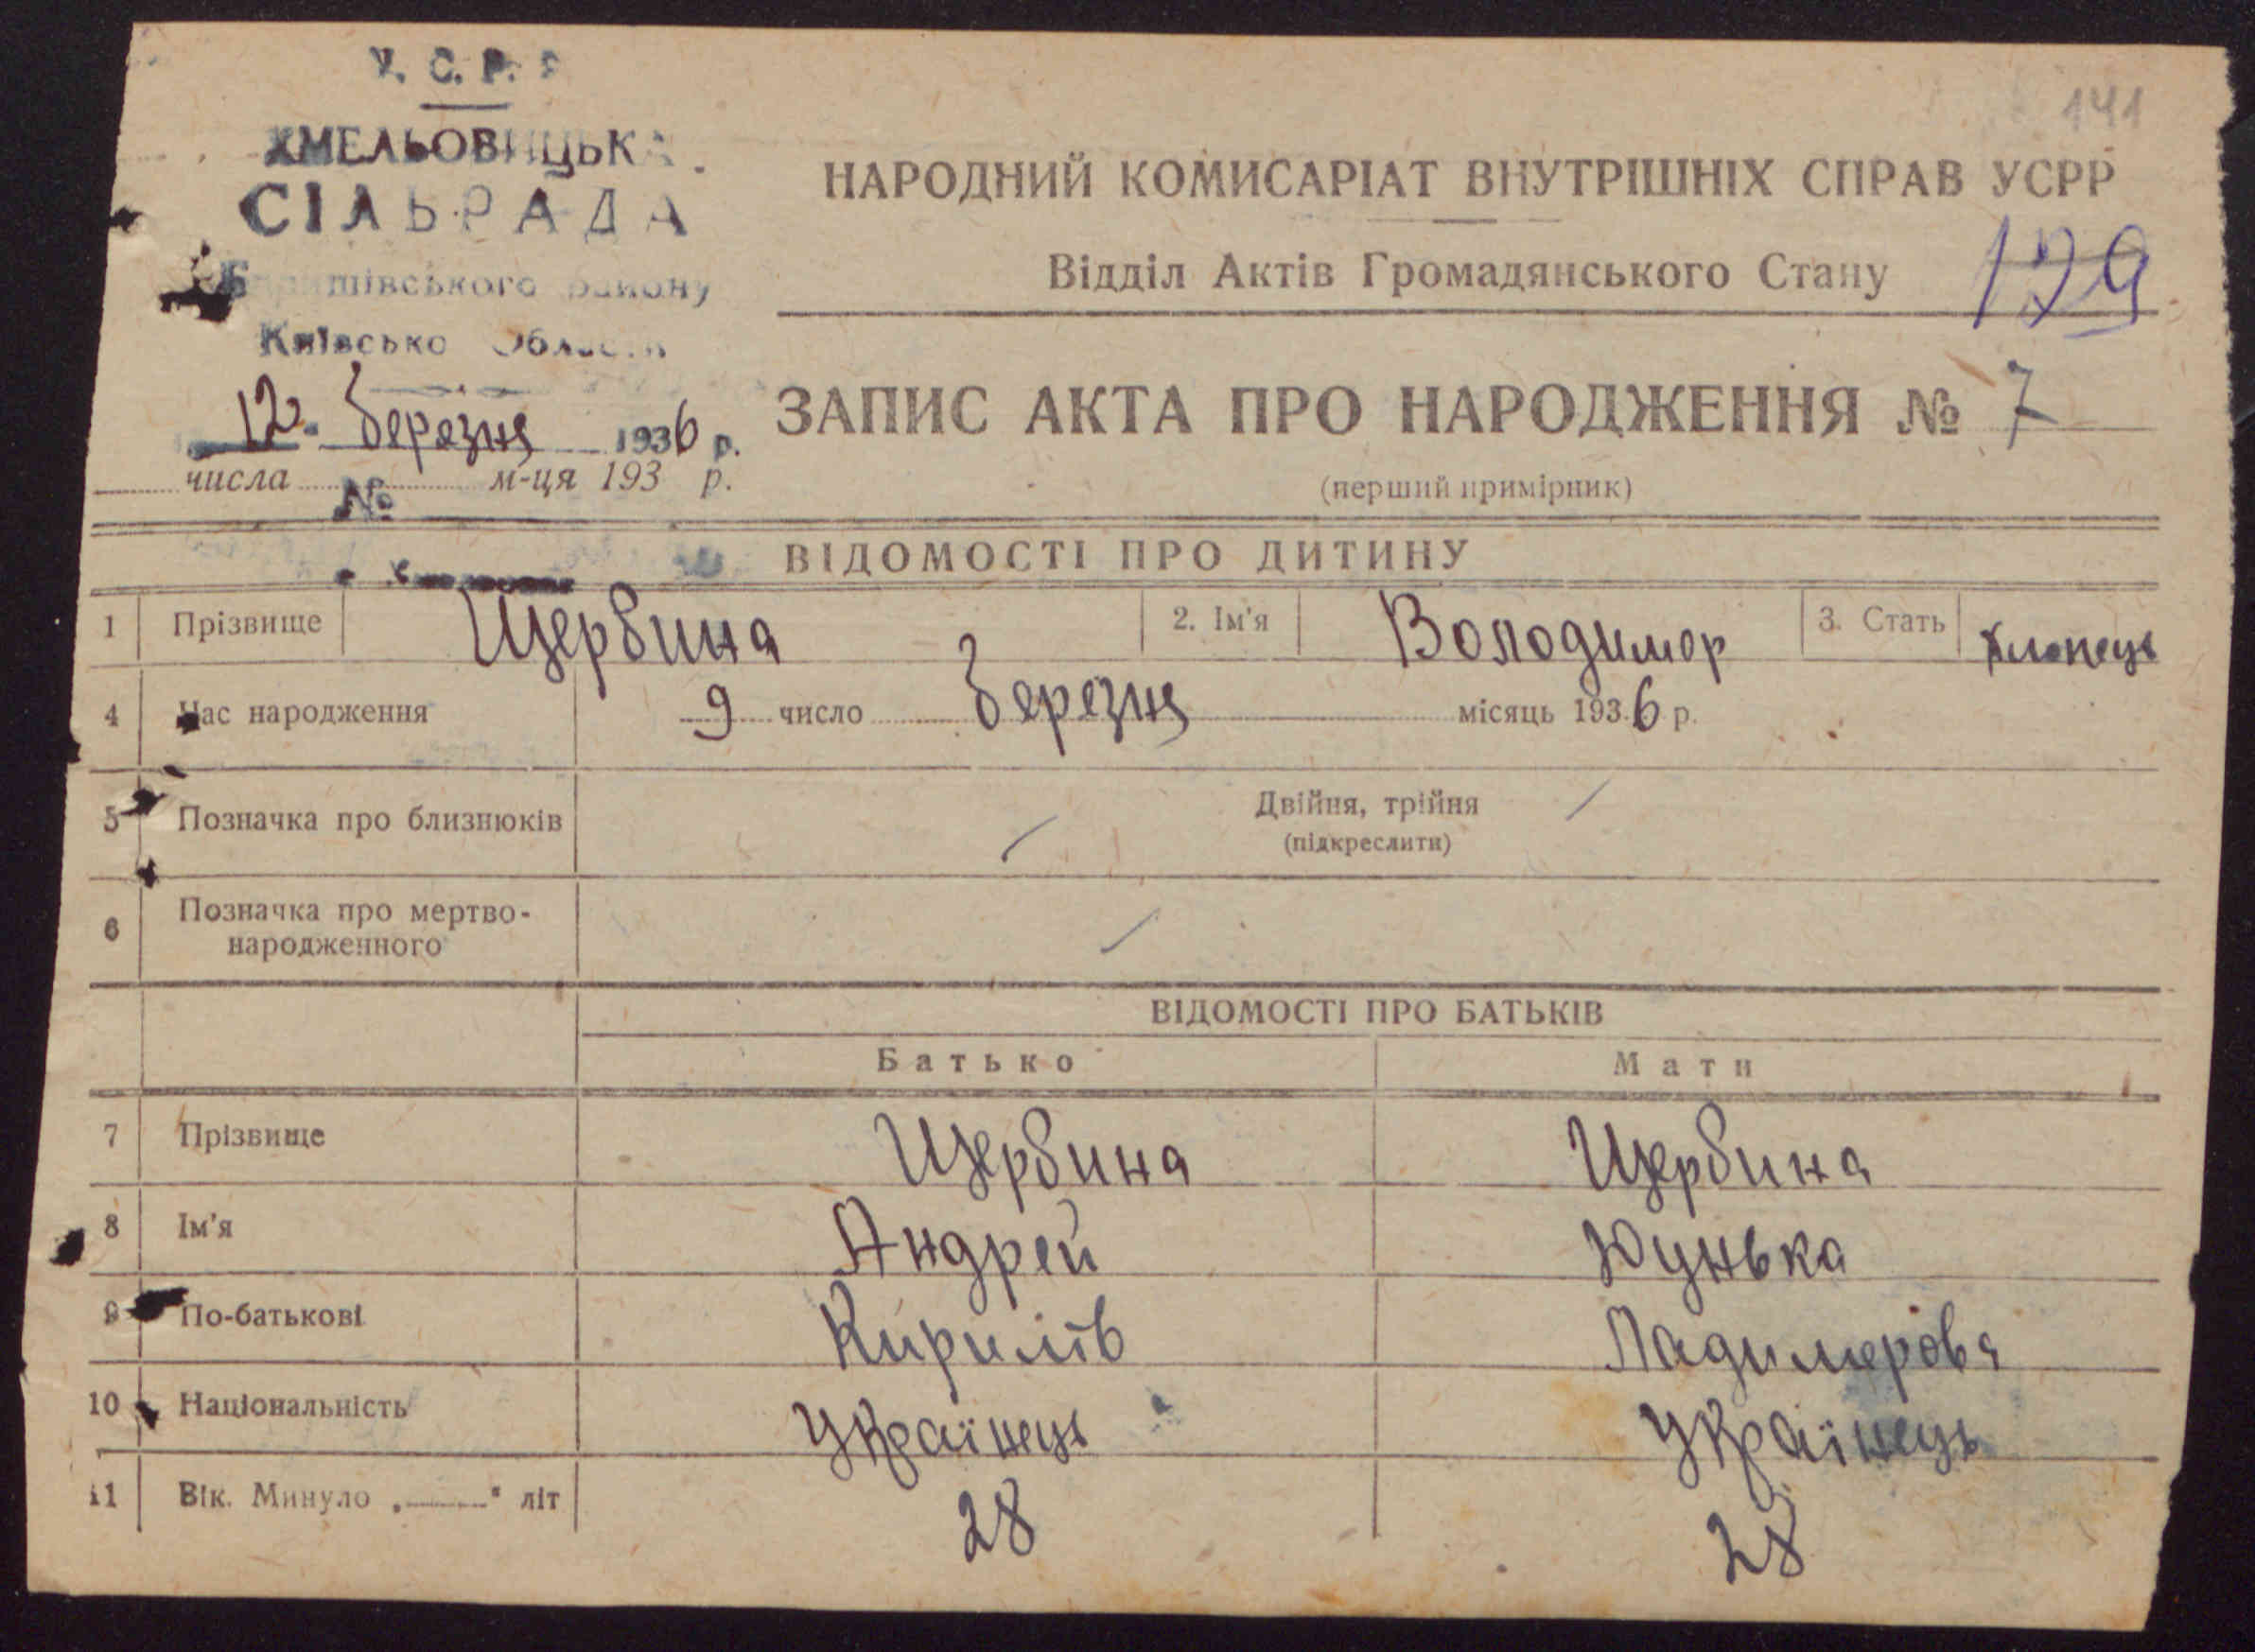 У. С. Р. Р
141
ХМЕЛЬОВИЦЬКА
СІЛЬРАДА
району
Київсько Області
НАРОДНИЙ КОМИСАРІАТ ВНУТРІШНІХ СПРАВ УСРР
Відділ Актів Громадянського Стану 179
12 березня 1936 р.
числа м-ця 193 р.
№
ЗАПИС АКТА ПРО НАРОДЖЕННЯ № 7
(перший примірник)
ВІДОМОСТІ ПРО ДИТИНУ
1 Прізвище Щербина 2. Ім'я Володимер 3. Стать хлопець
4 Час народження 9 число березня місяць 1936 р.
5 Позначка про близнюків Двійня, трійня
(підкреслити)
6 Позначка про мертво-
народженного
ВІДОМОСТІ ПРО БАТЬКІВ
Батько Мати
7 Прізвище Щербина Щербина
8 Ім'я Андрей Юцнька
9 По-батькові Кирилів Ладимерова
10 Національність Українець Українець
11 Вік. Минуло „ “ літ 28 28